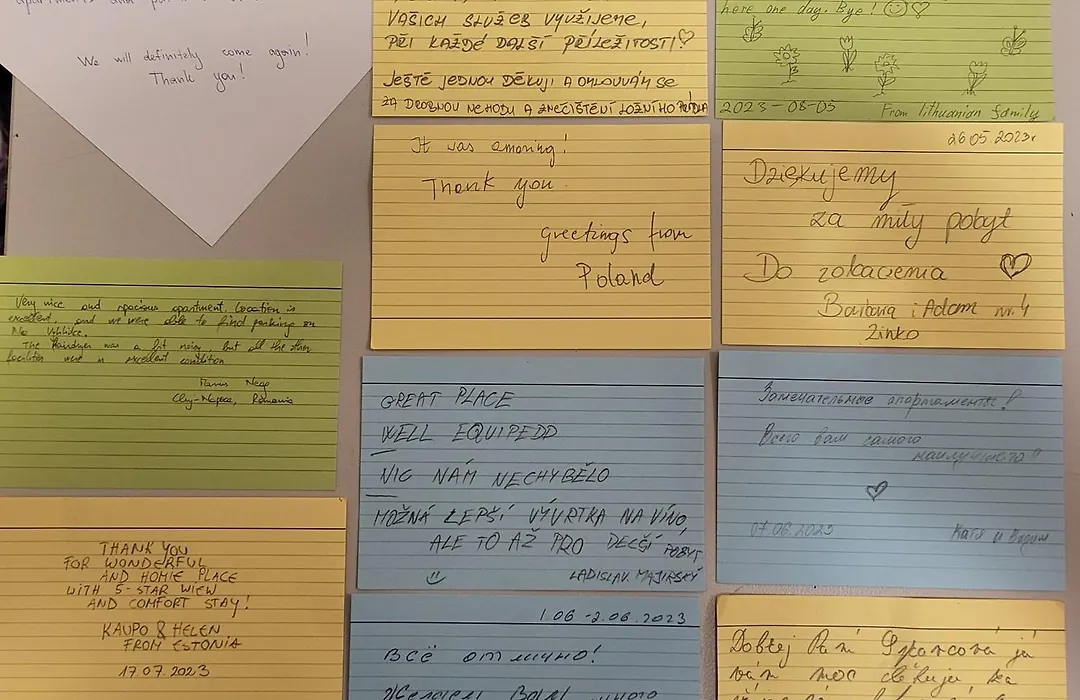 We will definitely come again!
Thank you!
VAŠICH SLUŽEB VYUŽIJEME,
PŘI KAŽDÉ DALŠÍ PŘÍLEŽITOSTI ♡
JEŠTĚ JEDNOU DĚKUJI A OMLOUVÁM SE
ZA DROBNOU NEHODU A ZNEČIŠTĚNÍ LOŽNÍHO PRÁDLA
here one day. Bye! ☺♡
2023-08-05 From lithuanian family
It was amazing!
Thank you
Greetings from
Poland
26.05.2023r
Dziękujemy
za miły pobyt
Do zobaczenia ♡
Barbara i Adam nr.4
Zinko
Very nice and spacious apartment. Location is
excellent, and we were able to find parking on
Na
The Hairdryer was a bit noisy, but all the other
facilities were in excellent condition
Cluj-Napoca, Romania
GREAT PLACE
WELL EQUIPEDD
NIC NÁM NECHYBĚLO
MOŽNÁ LEPŠÍ VÝVRTKA NA VÍNO,
ALE TO AŽ PRO DELŠÍ POBYT
LADISLAV MAJIRSKÝ
Замечательные апартаменты!
Всего вам самого
наилучшего!!
♡
07.06.2023 Катя и Вадим
THANK YOU
FOR WONDERFUL
AND HOMIE PLACE
WITH 5-STAR WIEW
AND COMFORT STAY!
KAUPO & HELEN
FROM ESTONIA
17.07.2023
1.06 -2.06.2023
ВСЁ отлично!
Желаем Вам много
Dobřej Paní já
vám moc děkuju za